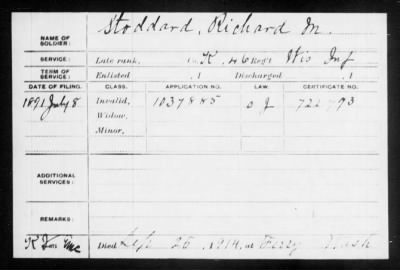 NAME OF SOLDIER: Stoddard, Richard M.
SERVICE: Late rank, Co. K, 46 Reg't Wis Inf
TERM OF SERVICE: Enlisted , 1 Discharged , 1
DATE OF FILING. CLASS. APPLICATION NO. LAW. CERTIFICATE NO.
1891 July 8 Invalid, 1037885 722793
Widow,
Minor,
ADDITIONAL SERVICES:
REMARKS:
Died Sep 26, 1914, at Ferry Wash